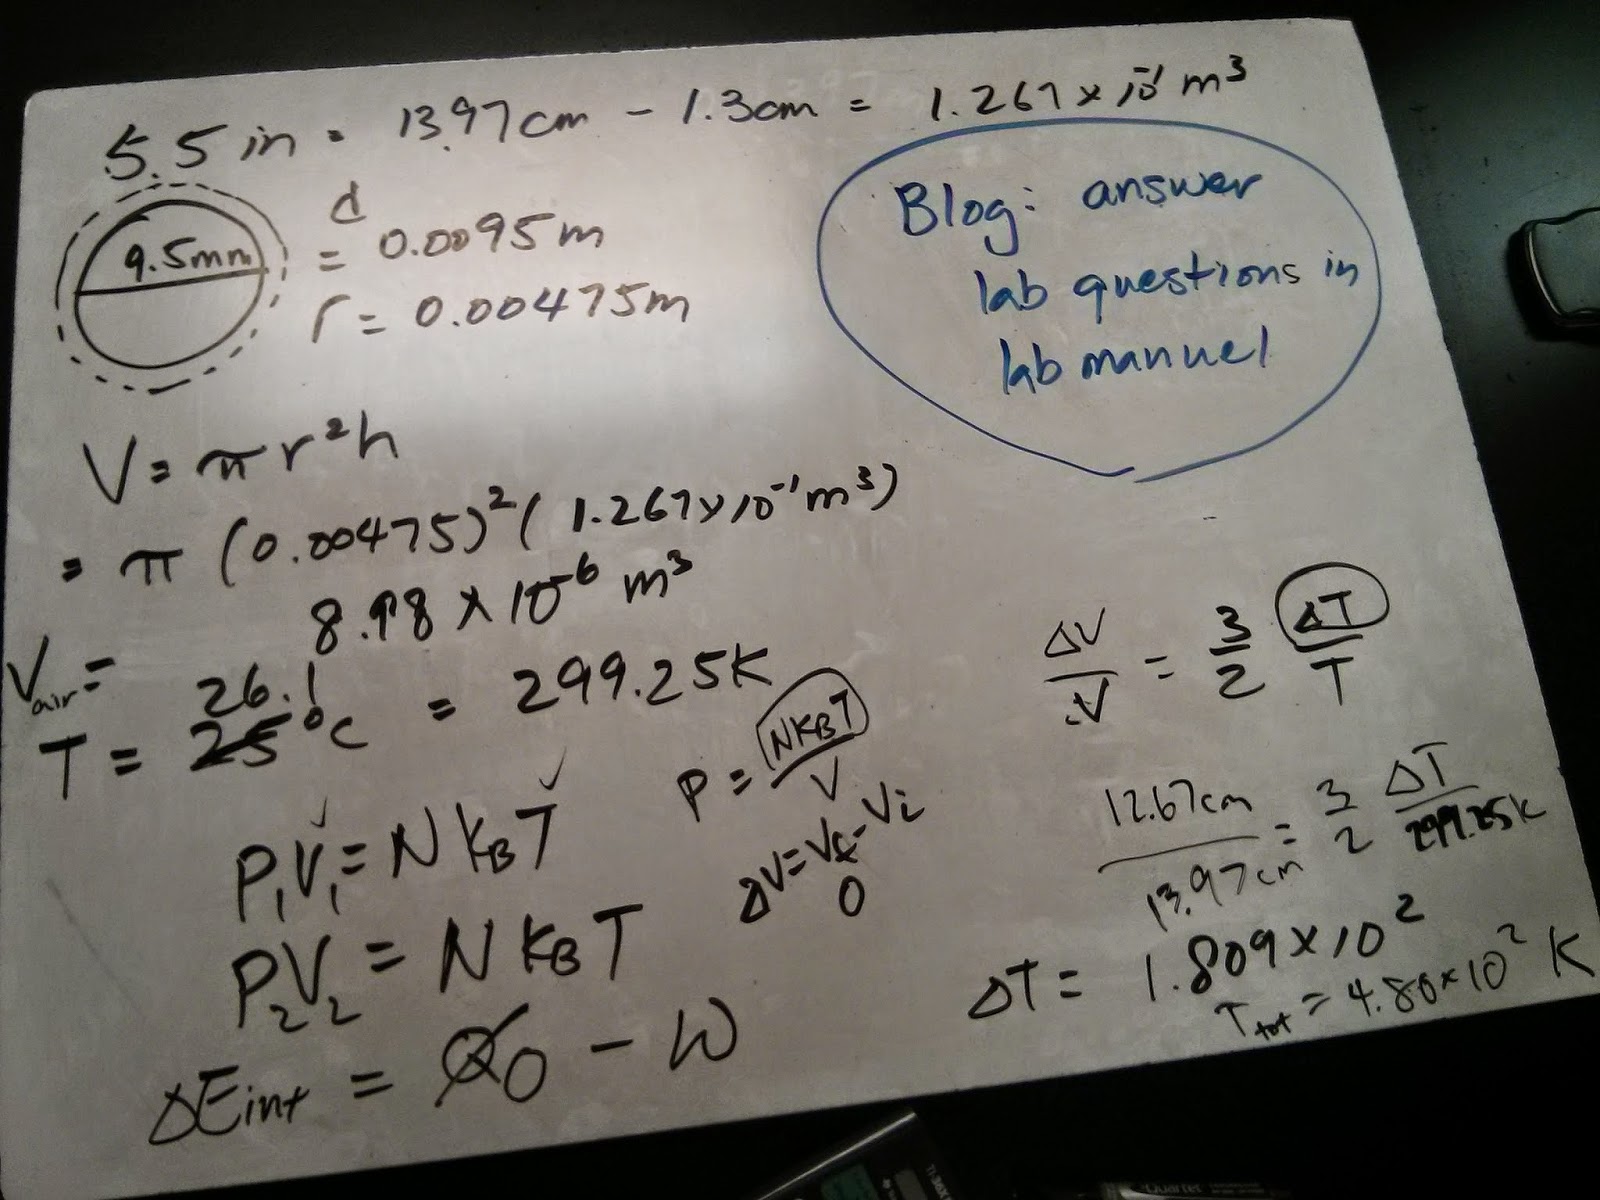 5.5 in = 13.97cm - 1.3cm = 1.267 x 10⁻¹ m³
9.5mm
d = 0.0095m
r = 0.00475m
Blog: answer
lab questions in
lab manuel
V = πr²h
= π (0.00475)² (1.267 x 10⁻¹ m³)
Vair = 8.98 x 10⁻⁶ m³
26.1
T = 25°C = 299.25K
P₁V₁ = NKBT
P₂V₂ = NKBT
ΔEint = Q0 - W
P = NKBT / V
ΔV = Vf - Vi
0
ΔV/V = 3/2 ΔT/T
12.67cm / 13.97cm = 3/2 ΔT / 299.25K
ΔT = 1.809 x 10²
Ttot = 4.80 x 10² K